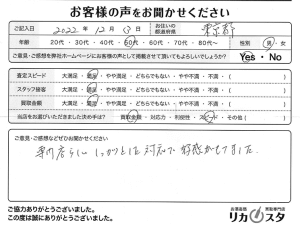 お客様の声をお聞かせください
ご記入日 2022年12月 日 お住いの都道府県 東京都
年齢 20代・30代・40代・50代・60代・70代・80代〜 性別 男・女
ご意見・ご感想を弊社ホームページにお客様の声として掲載させて頂いてもよろしいでしょうか? Yes・No
査定スピード 大満足・満足・やや満足・どちらでもない・やや不満・不満・( )
スタッフ接客 大満足・満足・やや満足・どちらでもない・やや不満・不満・( )
買取金額 大満足・満足・やや満足・どちらでもない・やや不満・不満・( )
当店をお選びいただきました決め手は? 買取金額・対応力・利便性・スピード・その他( )
ご意見・ご感想などぜひお聞かせください。
専門店らしいしっかりとした対応で好感がもてました。
ご協力ありがとうございました。
この度は誠にありがとうございました。
お酒高価 買取専門店
リカスタ